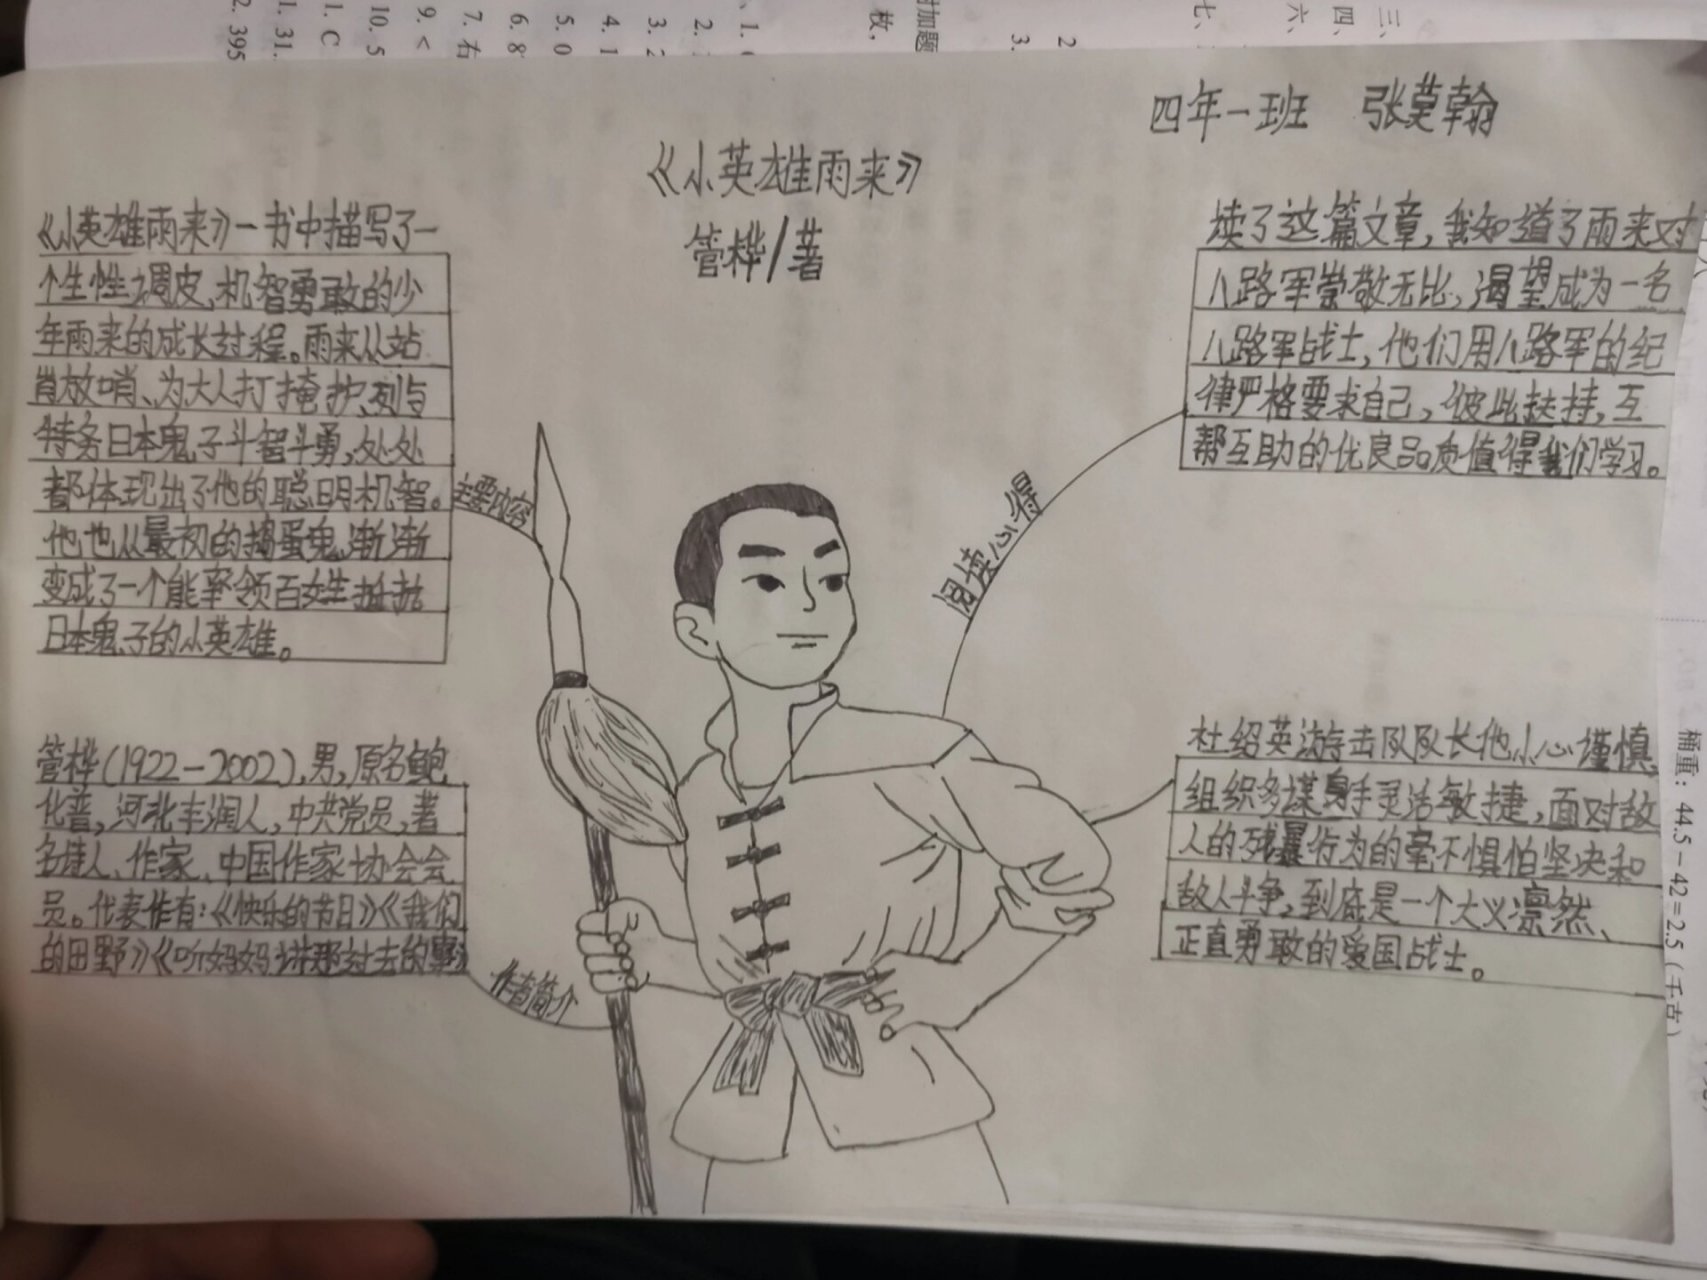 四年一班 张莫翰
《小英雄雨来》
管桦/著
《小英雄雨来》一书中描写了一
个生性调皮、机智勇敢的少
年雨来的成长过程。雨来从站
肖放哨、为大人打掩护、到与
特务日本鬼子斗智斗勇,处处
都体现出了他的聪明机智。
他也从最初的捣蛋鬼渐渐
变成了一个能率领百姓抵抗
日本鬼子的小英雄。
主要内容
管桦(1922-2002),男,原名鲍
化普,河北丰润人,中共党员,著
名诗人、作家、中国作家协会会
员。代表作有:《快乐的节日》《我们
的田野》《听妈妈讲那过去的事
作者简介
读了这篇文章,我知道了雨来对
八路军崇敬无比,渴望成为一名
八路军战士,他们用八路军的纪
律严格要求自己,彼此扶持,互
帮互助的优良品质值得我们学习。
阅读心得
杜绍英游击队队长他小心谨慎
组织多谋身手灵活敏捷,面对敌
人的残暴行为的毫不惧怕坚决和
敌人斗争,到底是一个大义凛然、
正直勇敢的爱国战士。
2. 395
1. 31.
1. C
10. 5
9. <
7. 右
6. 8
5. 0
4. 1
3. 2
2.
1.
枚,
附加题
3.
2
七、
六、
四、
三、
桶重:44.5-42=2.5(千克)